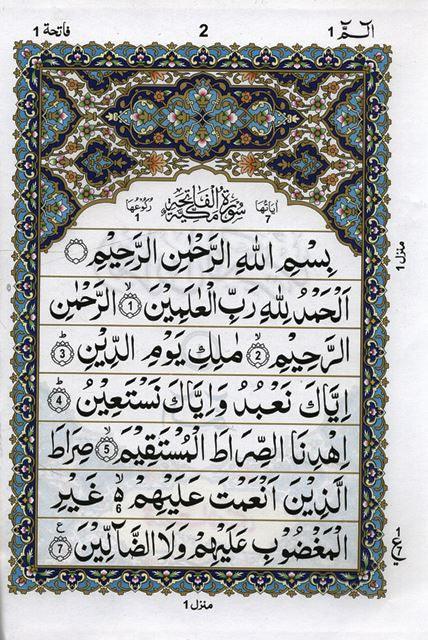 الٓمّٓ ١ 2 فاتحة ١
اٰيَاتُهَا 7 سُوْرَةُ الْفَاتِحَةِ مَكِّيَّةٌ رُكُوْعُهَا 1
بِسْمِ اللّٰهِ الرَّحْمٰنِ الرَّحِيْمِ
اَلْحَمْدُ لِلّٰهِ رَبِّ الْعٰلَمِيْنَ ۙ 1 الرَّحْمٰنِ
الرَّحِيْمِ ۙ 2 مٰلِكِ يَوْمِ الدِّيْنِ ؕ 3
اِيَّاكَ نَعْبُدُ وَاِيَّاكَ نَسْتَعِيْنُ ؕ 4
اِهْدِنَا الصِّرَاطَ الْمُسْتَقِيْمَ ۙ 5 صِرَاطَ
الَّذِيْنَ اَنْعَمْتَ عَلَيْهِمْ ۙ 6 غَيْرِ
الْمَغْضُوْبِ عَلَيْهِمْ وَلَا الضَّآلِّيْنَ 7 ع
منزل ١
1 ع 7
منزل ١